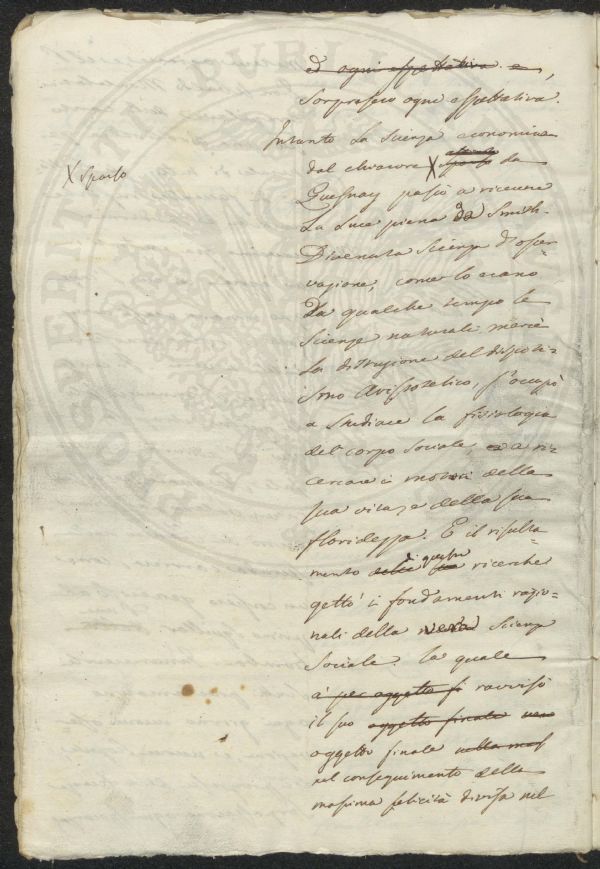 ed ogni espettativa e,
sorpresero ogni espettativa.
Intanto la scienza economica
dal chiarore X sparso da
X sparso
Quesnay passò a ricevere
la luce piena da Smith.
Divenuta scienza d'osser
vazione, come lo erano
da qualche tempo le
scienze naturali, mercè
la distruzione del dispoti-
smo Aristotelico, s'occupò
a studiare la fisiologia
del corpo sociale, e a ri-
cercare i motori della
sua vita, e della sua
floridezza. E il risulta-
mento di queste ricerche
gettò i fondamenti razio-
nali della vera Scienza
Sociale la quale
à per oggetto si ravvisò
il suo oggetto finale
oggetto finale nella mas
nel conseguimento della
massima felicità divisa nel